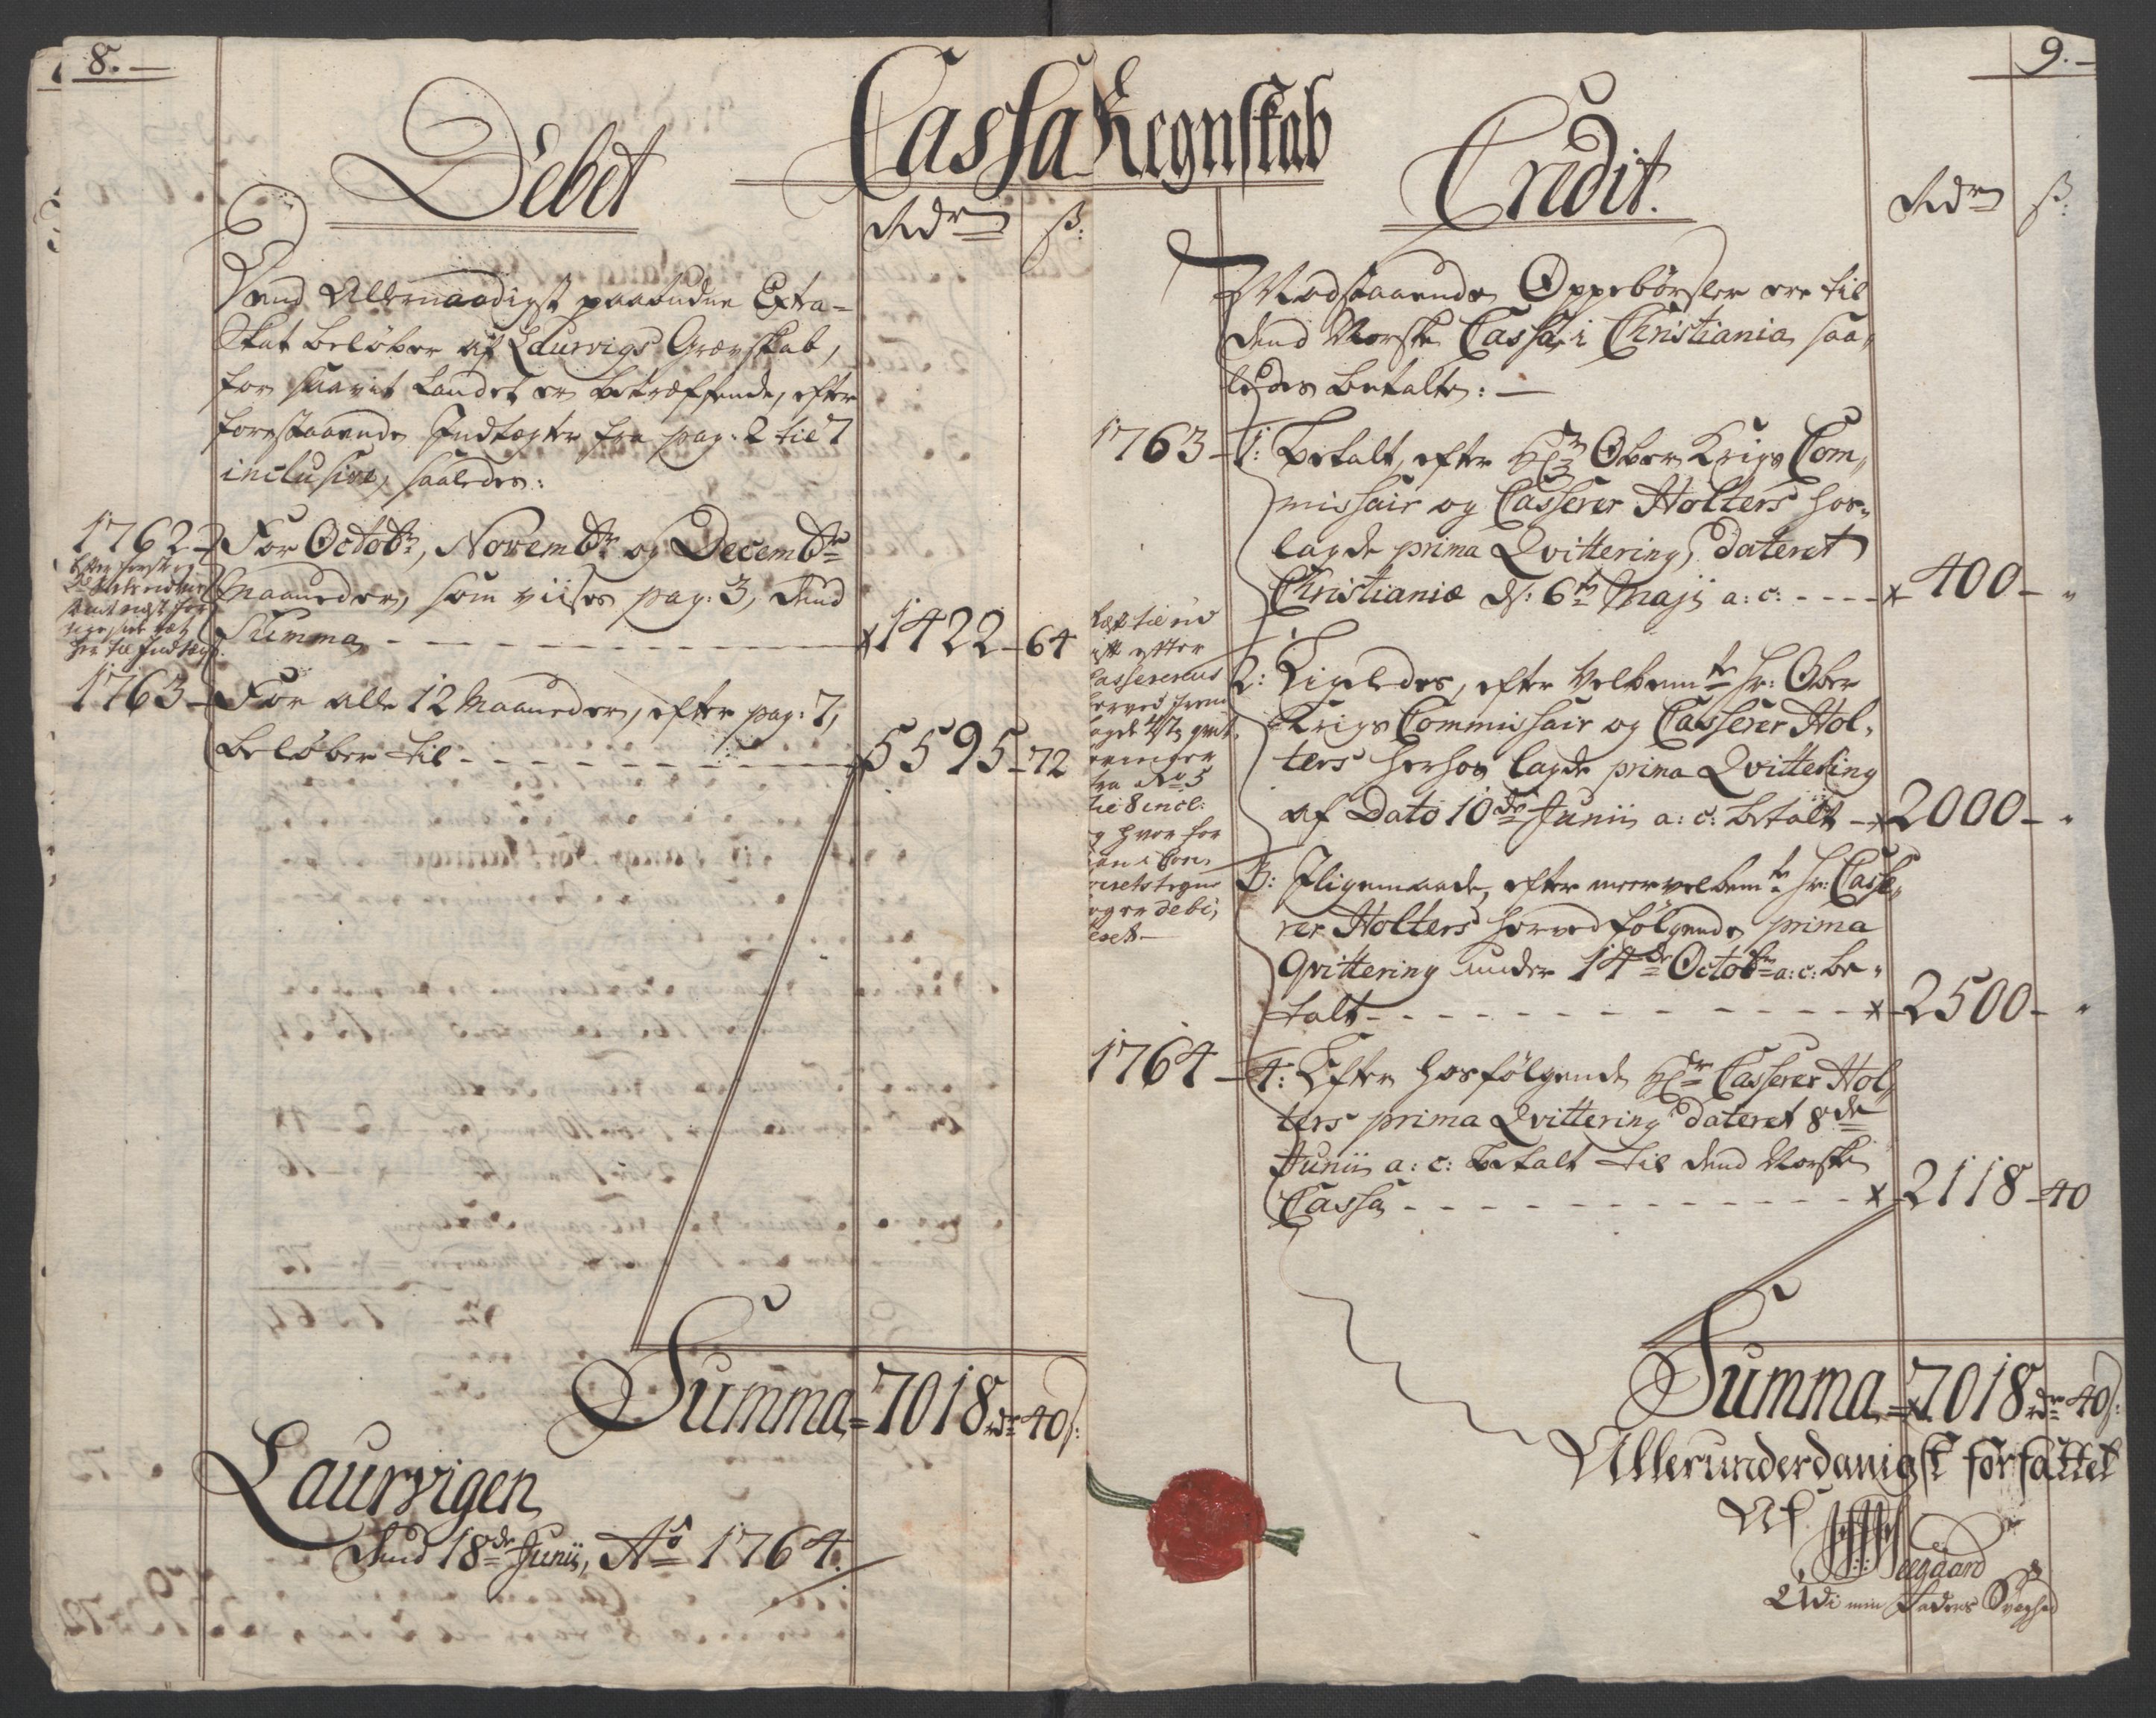 8.
Cassa Regnskab
9.
Debet
Rdr ß:
Dend Allernaadigst paabudne Extra-
Skat beløber af Laurvigs Grævskab,
for saavit Landet er betreffende, efter
forestaaende Indtægter fra pag: 2 til 7
inclusive, saaledes:
1762 For Octobr, Novembr og Decembr
Maaneder, som viises pag: 3, dend
Summa 1422 - 64
her til Indtægt.
1763 - For alle 12 Maaneder, efter pag: 7,
beløber til 5595 - 72
Summa = 7018 rdr 40 s:
Laurvigen
dend 18de Junii, Ao 1764.
Credit.
Rdr ß:
Modstaaende Oppebørsler ere til
dend Norske Cassa i Christiania saa,
ledes betalte: —
1763 - 1: Betalt, efter Hr Ober Krigs Com,
missair og Casserer Holters hos,
lagde prima Qvittering, dateret
Christianiæ d: 6te Maji a: c: 400 - "
2: Ligeledes, efter Velbemte Hr: Ober
Krigs Commissair og Casserer Hol,
ters herhos lagde prima Qvittering
af Dato 10de Junii a: c: betalt 2000 - "
3: Iligemaade, efter meervelbemte Hr: Casse,
rer Holters herved følgende prima
Qvittering under 14de Octobr a: c: be,
talt 2500 - "
efter
Cassererens
herved
fra No 5
til 8 incl:
og hvor for
debi,
teret
1764 - 4: Efter hosfølgende Hr Casserer Hol,
ters prima Qvittering dateret 8de
Junii a: c: betalt til dend Norske
Cassa 2118 - 40
Summa = 7018 rdr 40 s:
Allerunderdanigst forfattet
Af
Seegaard
Udi min Faders Svaghed